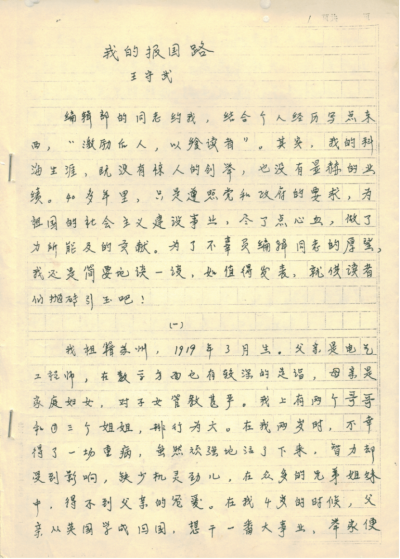 我的报国路
王守武
编辑部的同志约我，结合个人经历写点东
西，“激励后人，以飨读者”。其实，我的科
海生涯，既没有惊人的创举，也没有显赫的业
绩。40多年里，只是遵照党和政府的要求，为
祖国的社会主义建设事业，尽了点心血，做了
力所能及的贡献。为了不辜负编辑同志的厚望，
我还是简要地谈一谈，如值得发表，就供读者
们抛砖引玉吧！
(一)
我祖籍苏州，1919年3月生。父亲是电气
工程师，在数学方面也有较深的造诣，母亲是
家庭妇女，对子女管教甚严。我上有两个哥哥
和三个姐姐，排行为六。在我两岁时，不幸
得了一场重病，虽然顽强地活了下来，智力却
受到影响，缺少机灵劲儿，在众多的兄弟姐妹
中，得不到父亲的宠爱。在我4岁的时候，父
亲从英国学成回国，想干一番大事业，举家便